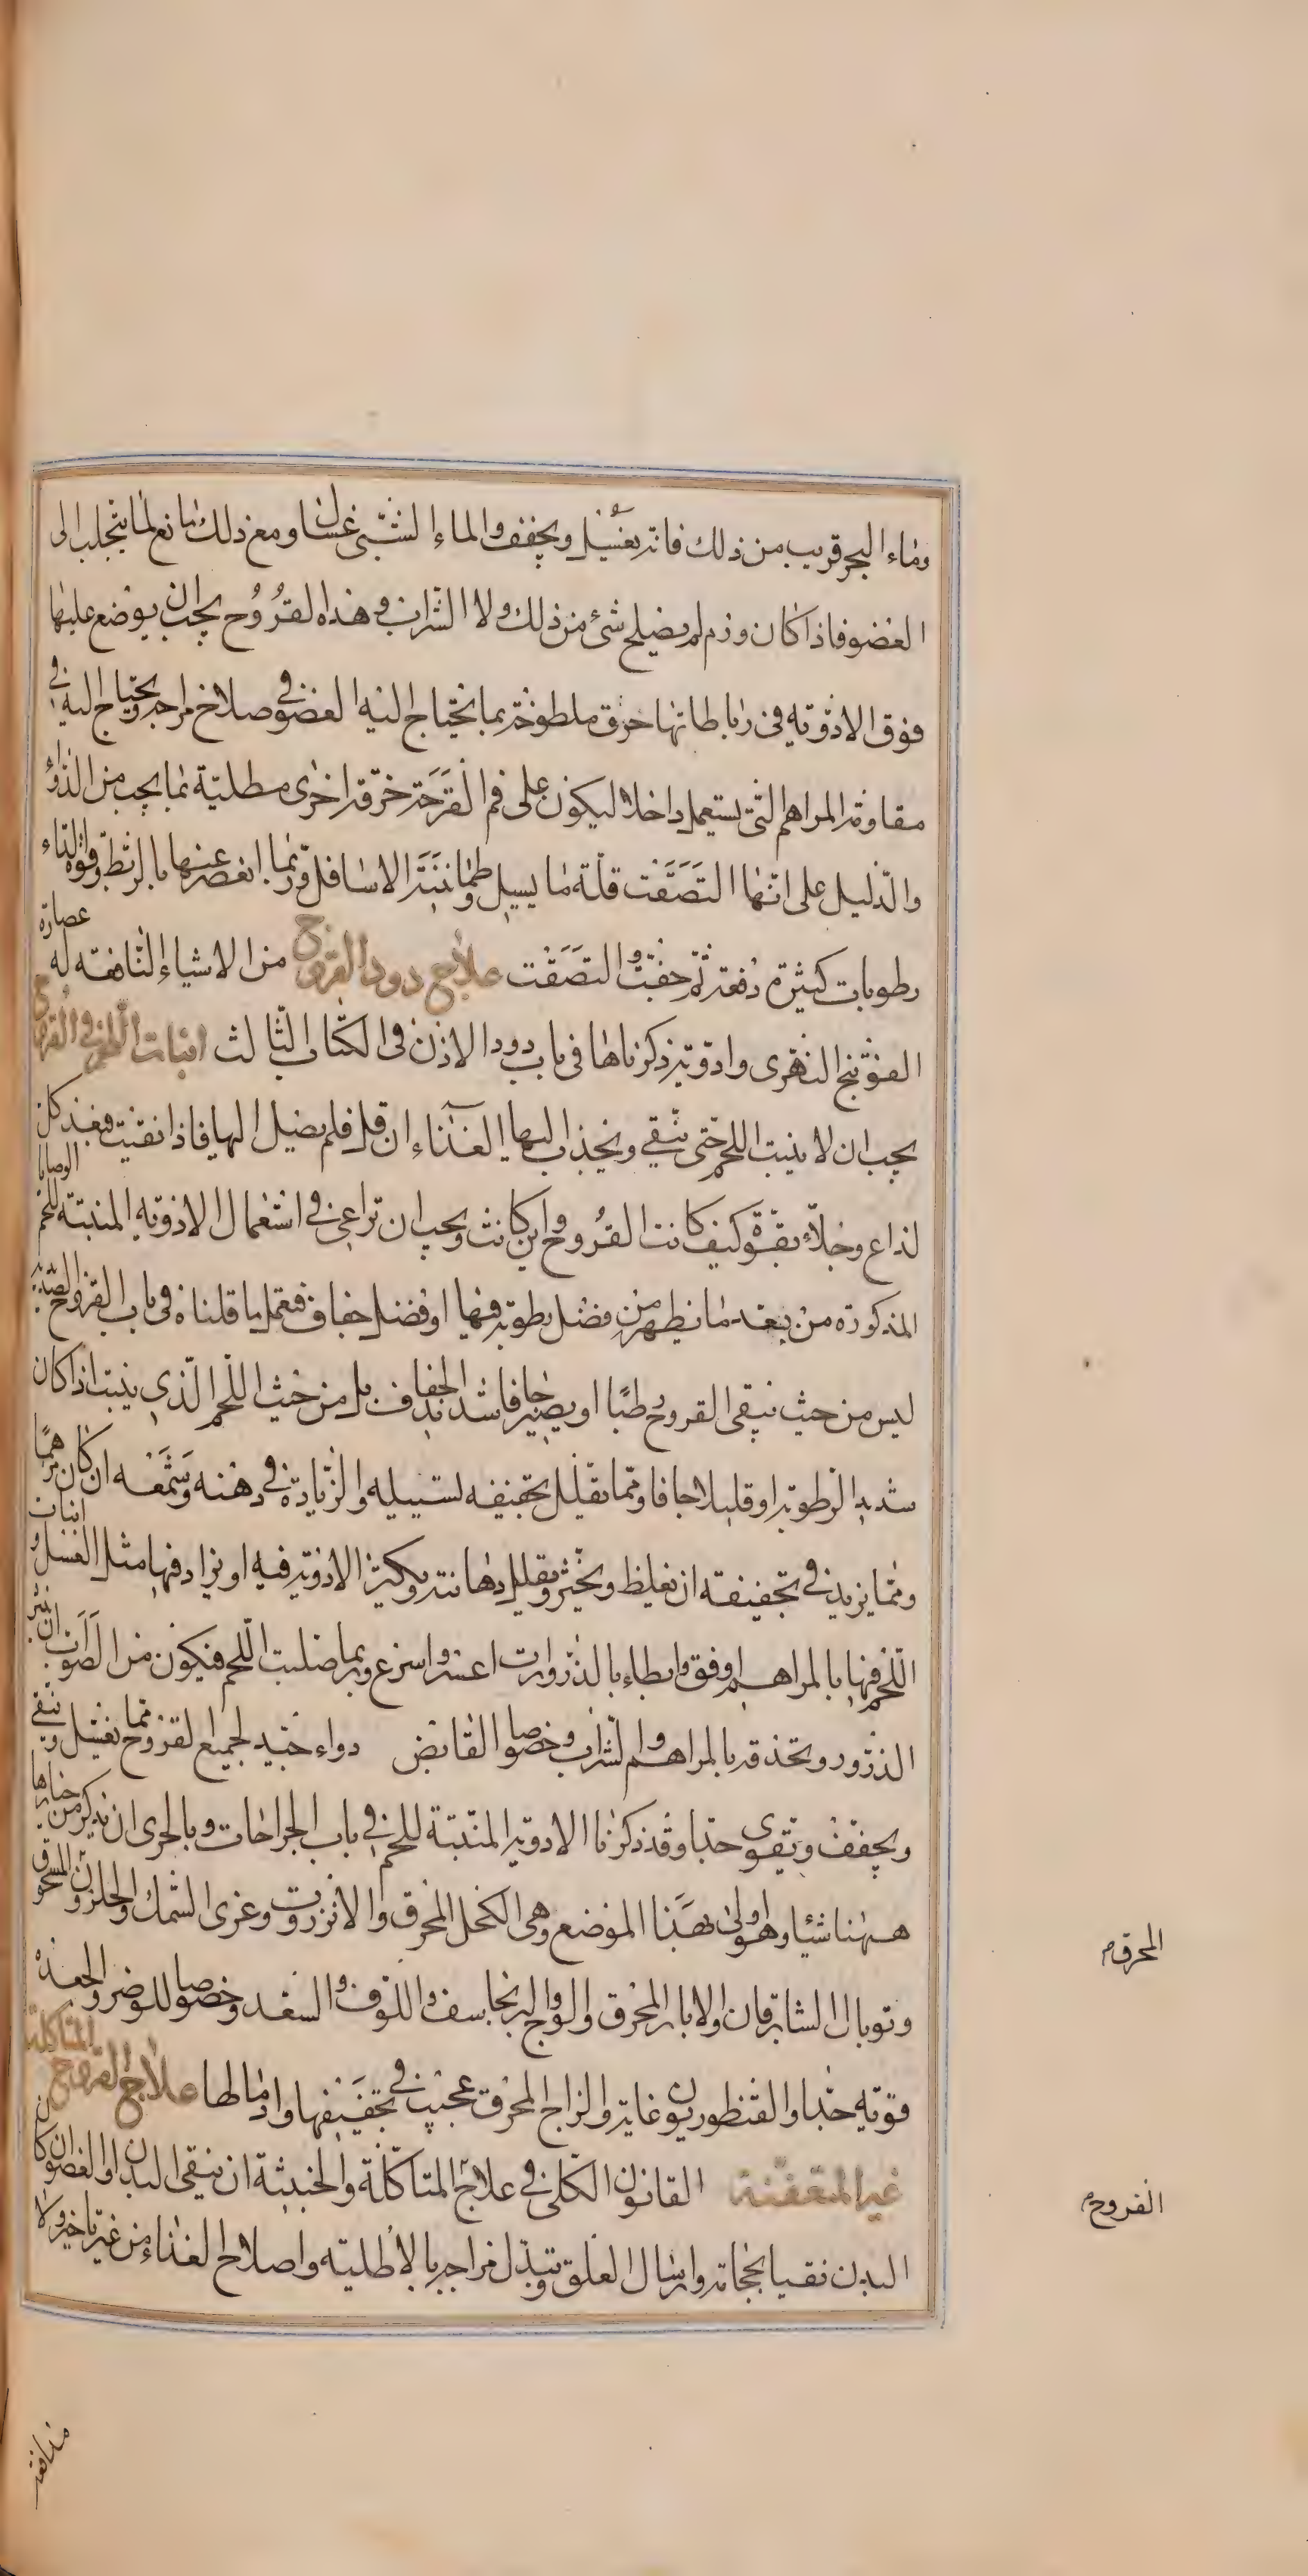 وماء البحر قريب من ذلك فانه يغسل ويجفف والماء الشبّى غسّال ومع ذلك مانع لما يتجلب الى
العضو فاذا كان ورم لم يصلح شئ من ذلك ولا الشراب وهذه القُرُوح يجب ان يوضع عليها
فوق الادوية فى رباطاتها خرق ملطوخة بما يحتاج اليه العضو فى صلاح مزاجه ويحتاج اليه فى
مقاومة المراهم التى يستعمل داخلا ليكون على فم القَرحَة خرقة اخرى مطلية بما يجب من الدواء
والدليل على انها التصَقَت قلة ما يسيل وطمانَيَنَة الاسافل وربما انعصر عنها بالربط وقوة الدواء
رطوبات كثيرة دفعة ثم جفت والتصَقَت علاج دود القروح من الاشياء النافعة له عصارة
الفوتنج النهرى وادوية ذكرناها فى باب دود الاذن فى الكتاب الثالث انبات اللحم فى القروح
يجب ان لا ينبت اللحم حتى ينقي ويجذب اليها الغذاء ان قل فلم يصل اليها فاذا نقيت فبعد كل
لذاع وجلّاء بقوّة كيف كانت القُروح واين كانت ويجب ان تراعى فى استعمال الادوية المنبتة للحم الوصايا
المذكورة من بعد ما يظهر من فضل رطوبة فيها او فضل جفاف فتعمل ما قلناه فى باب القروح الصديدية
ليس من حيث تبقى القروح رطبًا او يصير جافا شديد الجفاف بل من حيث اللحم الذى ينبت اذا كان
شديد الرطوبة او قليلا جافا ومما يقلل تجفيفه تسييله والزيادة فى دهنه وشَمَعه ان كان مرهمًا
ومما يزيد فى تجفيفه ان يغلظ ويخثر ويقلل دهانته ويكثر الادوية فيه او يزاد فيها مثل العسل وانبات
اللحم فيها بالمراهم اوفق وابطاء بالذرورات اعسر واسرع وربما صلبت اللحم فيكون من الصَوَاب ان ينثر
الذرور ويحدق بالمراهم والشراب وخصوصا القابض دواء جيد لجميع القروح مما يغسل وينقي
ويجفف ويقوى جدا وقد ذكرنا الادوية المنبتة للحم فى باب الجراحات وبالحرى ان نذكر من خيارها
ههنا شيئا وهو اولى بهَذا الموضع وهى الكحل المحرق والانزروت وغرى السمك والحلزون المسحوق
المحرق
وتوبال الشابرقان والابار المحرق والوج والبرنجاسف واللوف والسعد وخصوصا للوضر والجعدة
قوتة جدا والقنطوريون غاية والزاج المحرق عجيب فى تجفيفها وادمالها علاج القروح المتاكلة
غير المتعفنة القانون الكلى فى علاج المتاكلة والخبيثة ان ينقى البدن او العضو ان كان
القروح
البدن نقيا بحجامة وارسال العلق وتبدل مزاجه بالاطلية واصلاح الغذاء من غير تاخير ولا
مدافعة